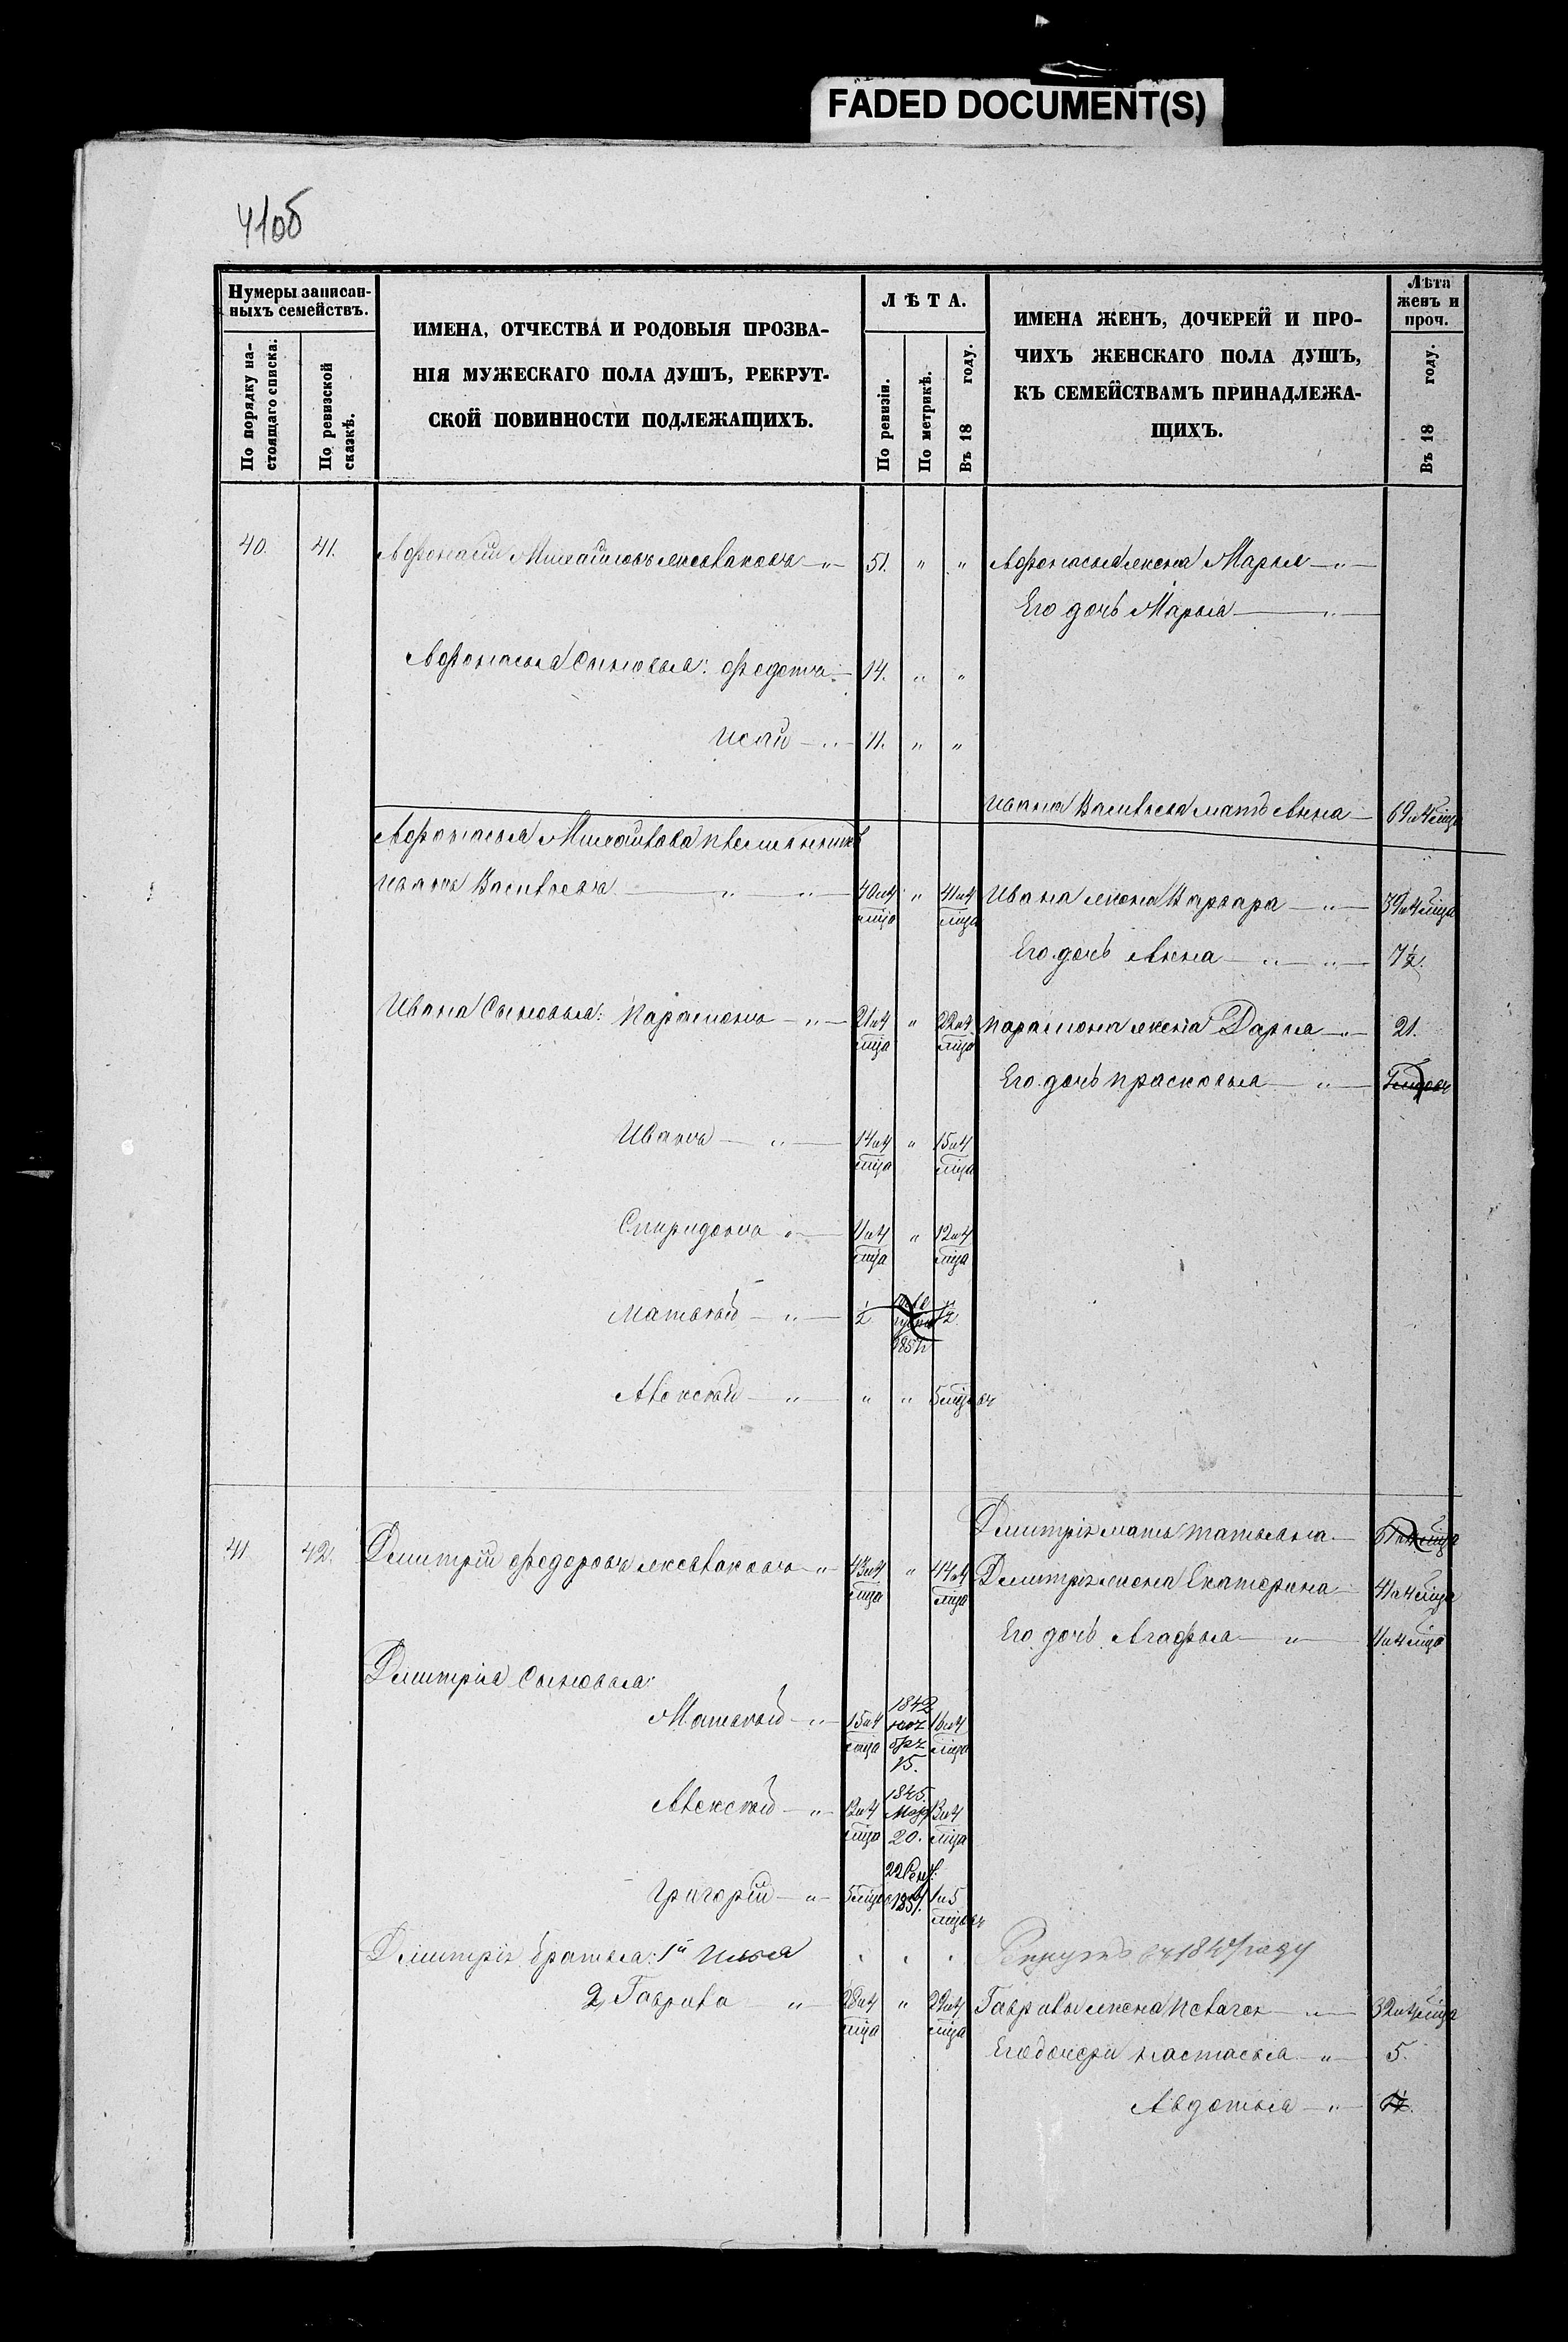 FADED DOCUMENT(S)
41об
Нумеры записан-
ныхъ семействъ.
По порядку на-
стоящаго списка.
По ревизской
сказкѣ.
ИМЕНА, ОТЧЕСТВА И РОДОВЫЯ ПРОЗВА-
НІЯ МУЖЕСКАГО ПОЛА ДУШЪ, РЕКРУТ-
СКОЙ ПОВИННОСТИ ПОДЛЕЖАЩИХЪ.
ЛѢТА.
По ревизіи.
По метрикѣ.
Въ 18 году.
ИМЕНА ЖЕНЪ, ДОЧЕРЕЙ И ПРО-
ЧИХЪ ЖЕНСКАГО ПОЛА ДУШЪ,
КЪ СЕМЕЙСТВАМЪ ПРИНАДЛЕЖА-
ЩИХЪ.
Лѣта
женъ и
проч.
Въ 18 году.
40. 41. Афонасій Михайловъ 51. " " Афонасья жена Марья
Его дочь Марья
Афонасья сыновья: Федотъ 14. " "
Исай 11. " "
Ивана Васильева мать Анна
Афонасья Михайлова племянникъ
Иванъ Васильевъ 40и4 мца " 41и4 мца Ивана жена Варвара 39и4 мца
Его дочь Анна 7½.
Ивана сыновья: Парамонъ 21и4 мца " 22и4 мца Парамона жена Дарья 21.
Его дочь Прасковья
Иванъ 14и4 мца " 15и4 мца
Спиридонъ 11и4 мца " 12и4 мца
Матвѣй ½
Алексѣй " " 5 мцовъ
Дмитрія мать Татьяна
41 42. Дмитрій Федоровъ 43и4 мца " 44и4 мца Дмитрія жена Екатерина 41и4 мца
Его дочь Агафья 11и4 мца
Дмитрія сыновья:
Матвѣй 15и4 мца 1842 15. 16и4 мца
Алексѣй 12и4 мца 1845. 20. 13и4 мца
Григорій 22 1857. 1и5 мцовъ
Дмитрія братья: 1й Илья " " " Рекрутъ въ 1847 году
2, Гаврила 28и4 мца " 29и4 мца Гаврилы жена Пелагея 32и4 мца
Его дочери Настасья 5.
Авдотья